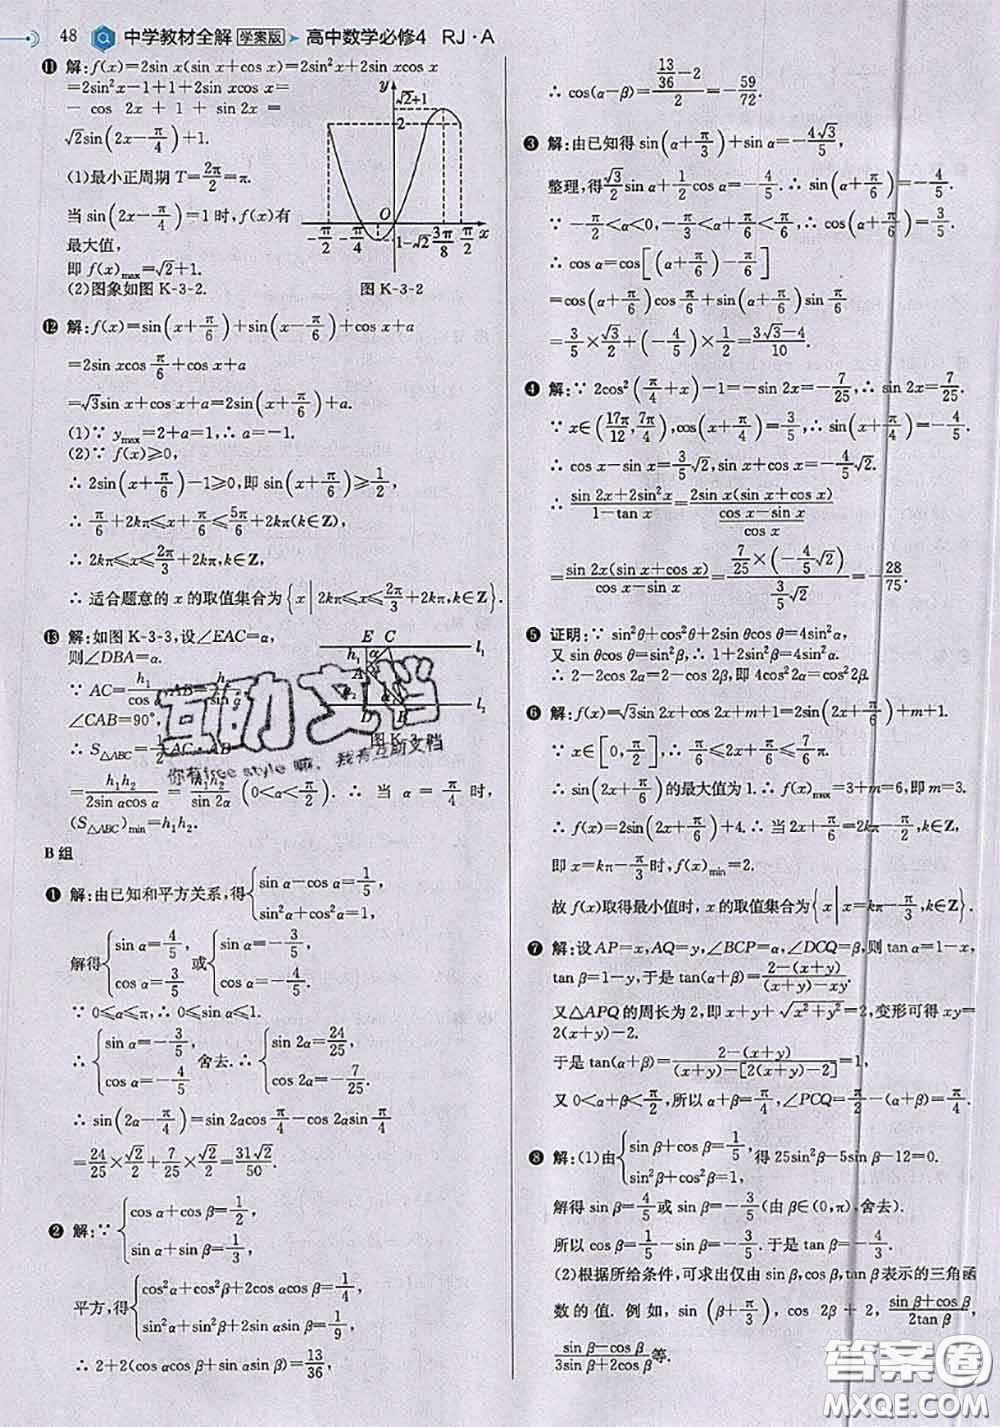 48 中学教材全解 学案版 ➤ 高中数学必修4 RJ·A
⓫ 解:f(x)=2sin x(sin x+cos x)=2sin²x+2sin xcos x
=2sin²x-1+1+2sin xcos x=
- cos 2x + 1 + sin 2x =
√2sin(2x-π/4)+1.
(1)最小正周期 T=2π/2=π.
当sin(2x-π/4)=1时,f(x)有
最大值,
即 f(x)max=√2+1.
(2)图象如图 K-3-2.
y
√2+1
2
-π/2 -π/4 O 1-√2 3π/8 π/2 x
图 K-3-2
⓬ 解:f(x)=sin(x+π/6)+sin(x-π/6)+cos x+a
=2sin xcos π/6+cos x+a
=√3sin x+cos x+a=2sin(x+π/6)+a.
(1)∵ ymax=2+a=1,∴ a=-1.
(2)∵ f(x)≥0,
∴ 2sin(x+π/6)-1≥0,即 sin(x+π/6)≥1/2,
∴ π/6+2kπ≤x+π/6≤5π/6+2kπ(k∈Z),
∴ 2kπ≤x≤2π/3+2kπ,k∈Z,
∴ 适合题意的 x 的取值集合为{x|2kπ≤x≤2π/3+2kπ,k∈Z}.
⓭ 解:如图 K-3-3,设∠EAC=α,
则∠DBA=α.
∵ AC=h₁/cos
∠CAB=90°,
∴ S△ABC=
=h₁h₂/2sin αcos α=h₁h₂/sin 2α (0<α<π/2). ∴ 当 α=π/4 时,
(S△ABC)min=h₁h₂.
E C l₁
h₁
A
D B l₂
互助文档
你有free style嘛, 我有互助文档
B 组
❶ 解:由已知和平方关系,得{sin α-cos α=1/5, sin²α+cos²α=1,
解得{sin α=4/5 cos α=3/5 或{sin α=-3/5, cos α=-4/5.
∵ 0≤α≤π,∴ 0≤sin α≤1.
∴ {sin α=-3/5, cos α=-4/5 舍去. ∴ {sin 2α=24/25, cos 2α=-7/25.
∴ sin(2α-π/4)=sin 2αcos π/4-cos 2αsin π/4
=24/25×√2/2+7/25×√2/2=31√2/50.
❷ 解:∵ {cos α+cos β=1/2, sin α+sin β=1/3,
平方,得{cos²α+cos²β+2cos αcos β=1/4, sin²α+sin²β+2sin αsin β=1/9,
∴ 2+2(cos αcos β+sin αsin β)=13/36,
∴ cos(α-β)=(13/36-2)/2=-59/72.
❸ 解:由已知得 sin(α+π/3)+sin α=-4√3/5,
整理,得√3/2sin α+1/2cos α=-4/5.∴ sin(α+π/6)=-4/5.
∵ -π/2<α<0,-π/3<α+π/6<π/6,∴ cos(α+π/6)=3/5.
∴ cos α=cos[(α+π/6)-π/6]
=cos(α+π/6)cos π/6+sin(α+π/6)sin π/6
=3/5×√3/2+(-4/5)×1/2=(3√3-4)/10.
❹ 解:∵ 2cos²(π/4+x)-1=-sin 2x=-7/25,∴ sin 2x=7/25.
∵ x∈(17π/12,7π/4),cos(x+π/4)=3/5,∴ sin(x+π/4)=-4/5.
∴ cos x+sin x=-4/5√2.
∴ (sin 2x+2sin²x)/(1-tan x)=2sin x(sin x+cos x)/((cos x-sin x)/cos x)
=sin 2x(sin x+cos x)/(cos x-sin x)=(7/25×(-4/5√2))/(3/5√2)=-28/75.
❺ 证明:∵ sin²θ+cos²θ+2sin θcos θ=4sin²α,
又 sin θcos θ=sin²β,∴ 1+2sin²β=4sin²α.
∴ 2-2cos 2α=2-cos 2β,即 4cos²2α=cos²2β.
❻ 解:f(x)=√3sin 2x+cos 2x+1+m=2sin(2x+π/6)+m+1.
∵ x∈[0,π/2],∴ π/6≤2x+π/6≤7π/6.
∴ sin(2x+π/6)的最大值为 1.∴ f(x)max=3+m=6,即 m=3.
∴ f(x)=2sin(2x+π/6)+4.∴ 当 2x+π/6=2kπ-π/2,k∈Z,
即 x=kπ-π/3时,f(x)min=2.
故 f(x)取得最小值时,x 的取值集合为{x|x=kπ-π/3,k∈Z}.
❼ 解:设 AP=x,AQ=y,∠BCP=α,∠DCQ=β,则 tan α=1-x,
tan β=1-y,于是 tan(α+β)=(2-(x+y))/((x+y)-xy).
又△APQ 的周长为 2,即 x+y+√(x²+y²)=2,变形可得 xy=
2(x+y)-2.
于是 tan(α+β)=(2-(x+y))/((x+y)-[2(x+y)-2])=1,
又 0<α+β<π/2,所以 α+β=π/4,∠PCQ=π/2-(α+β)=π/4.
❽ 解:(1)由{sin β+cos β=1/5, sin²β+cos²β=1, 得 25sin²β-5sin β-12=0.
解得 sin β=4/5或 sin β=-3/5(由 β∈(0,π),舍去).
所以 cos β=1/5-sin β=-3/5.于是 tan β=-4/3.
(2)根据所给条件,可求出仅由 sin β,cos β,tan β 表示的三角函
数的值. 例如, sin (β+π/3), cos 2β+2, (sin β+cos β)/2tan β,
(sin β-cos β)/(3sin β+2cos β)等.
答案圈
MXQE.COM